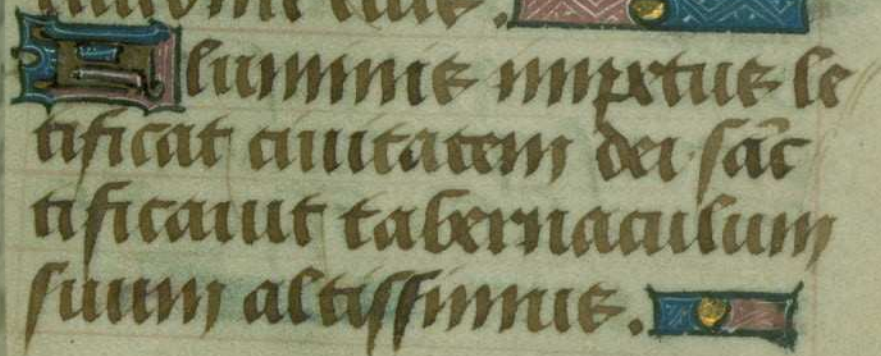 eius.
Fluminis impetus le
tificat ciuitatem dei sāc
tificauit tabernaculum
suum altissimus.